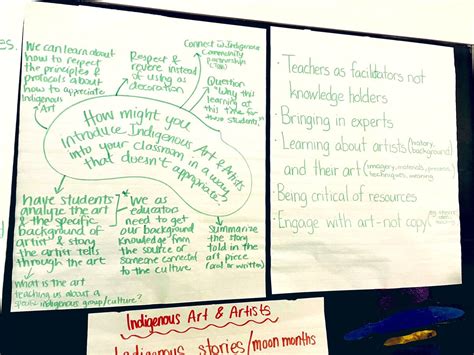 es.
We can learn about
how to respect
the principles &
protocols about
how to appreciate
Indigenous
Art
Respect &
revere instead
of using as
decoration
Connect w/ Indigenous
Community
partnerships
Question
"Why this
learning at
this time for
these students."
How might you
introduce Indigenous Art & Artists
into your classroom in a way
that doesn't appropriate?
have students
analyze the art
& the specific
background of
artist & story
the artist tells
through the art
what is the art
teaching us about a
specific indigenous group/culture?
*We as
educators
need to get
our background
knowledge from
the source or
someone connected
to the culture
Summarize
the story
told in the
art piece
(oral or written)
· Teachers as facilitators not
knowledge holders
· Bringing in experts
· Learning about artists (history, background)
and their art (imagery, materials,
techniques, meaning)
· Being critical of resources
· Engage with art - not copy
Indigenous Art & Artists
Indigenous stories/moon months